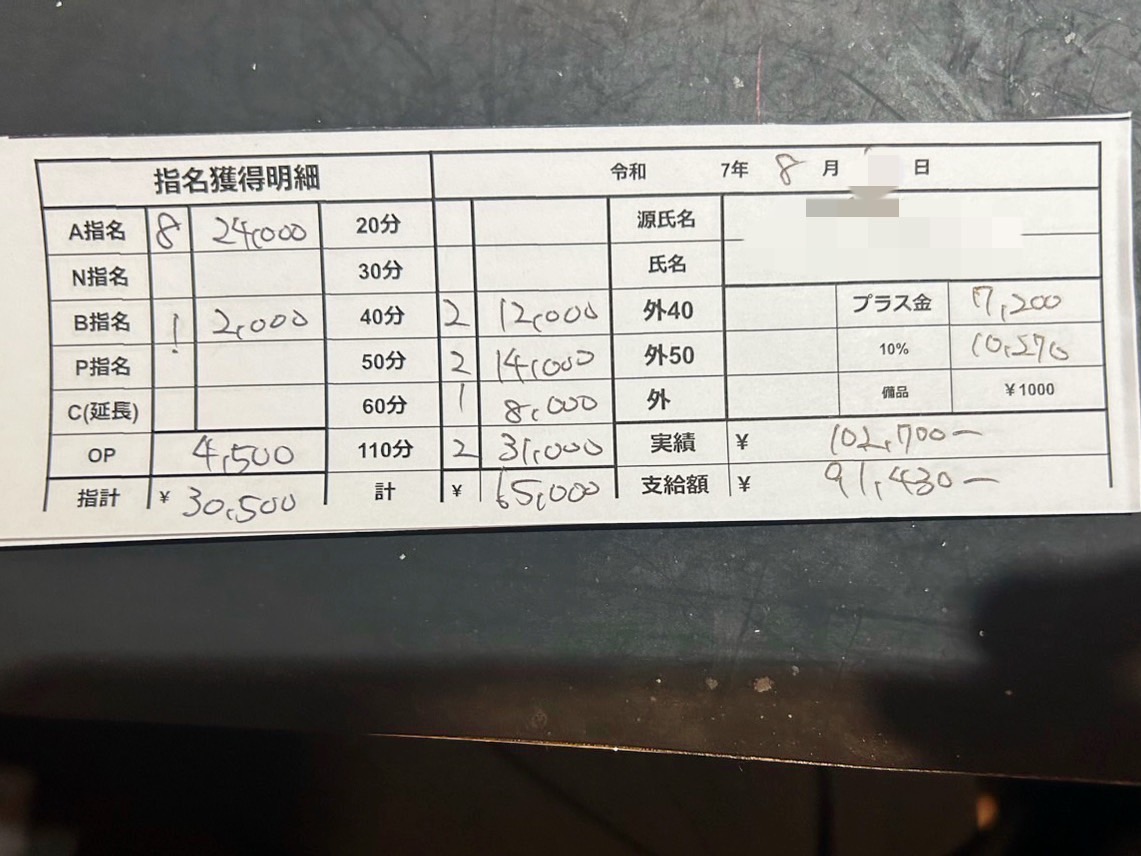 指名獲得明細 令和 7年 8月 日
A指名 8 24,000 20分 源氏名
N指名 30分 氏名
B指名 1 2,000 40分 2 12,000 外40 プラス金 7,200
P指名 50分 2 14,000 外50 10% 10,270
C(延長) 60分 1 8,000 外 備品 ¥1000
OP 4,500 110分 2 31,000 実績 ¥ 102,700-
指計 ¥ 30,500 計 ¥ 65,000 支給額 ¥ 91,430-